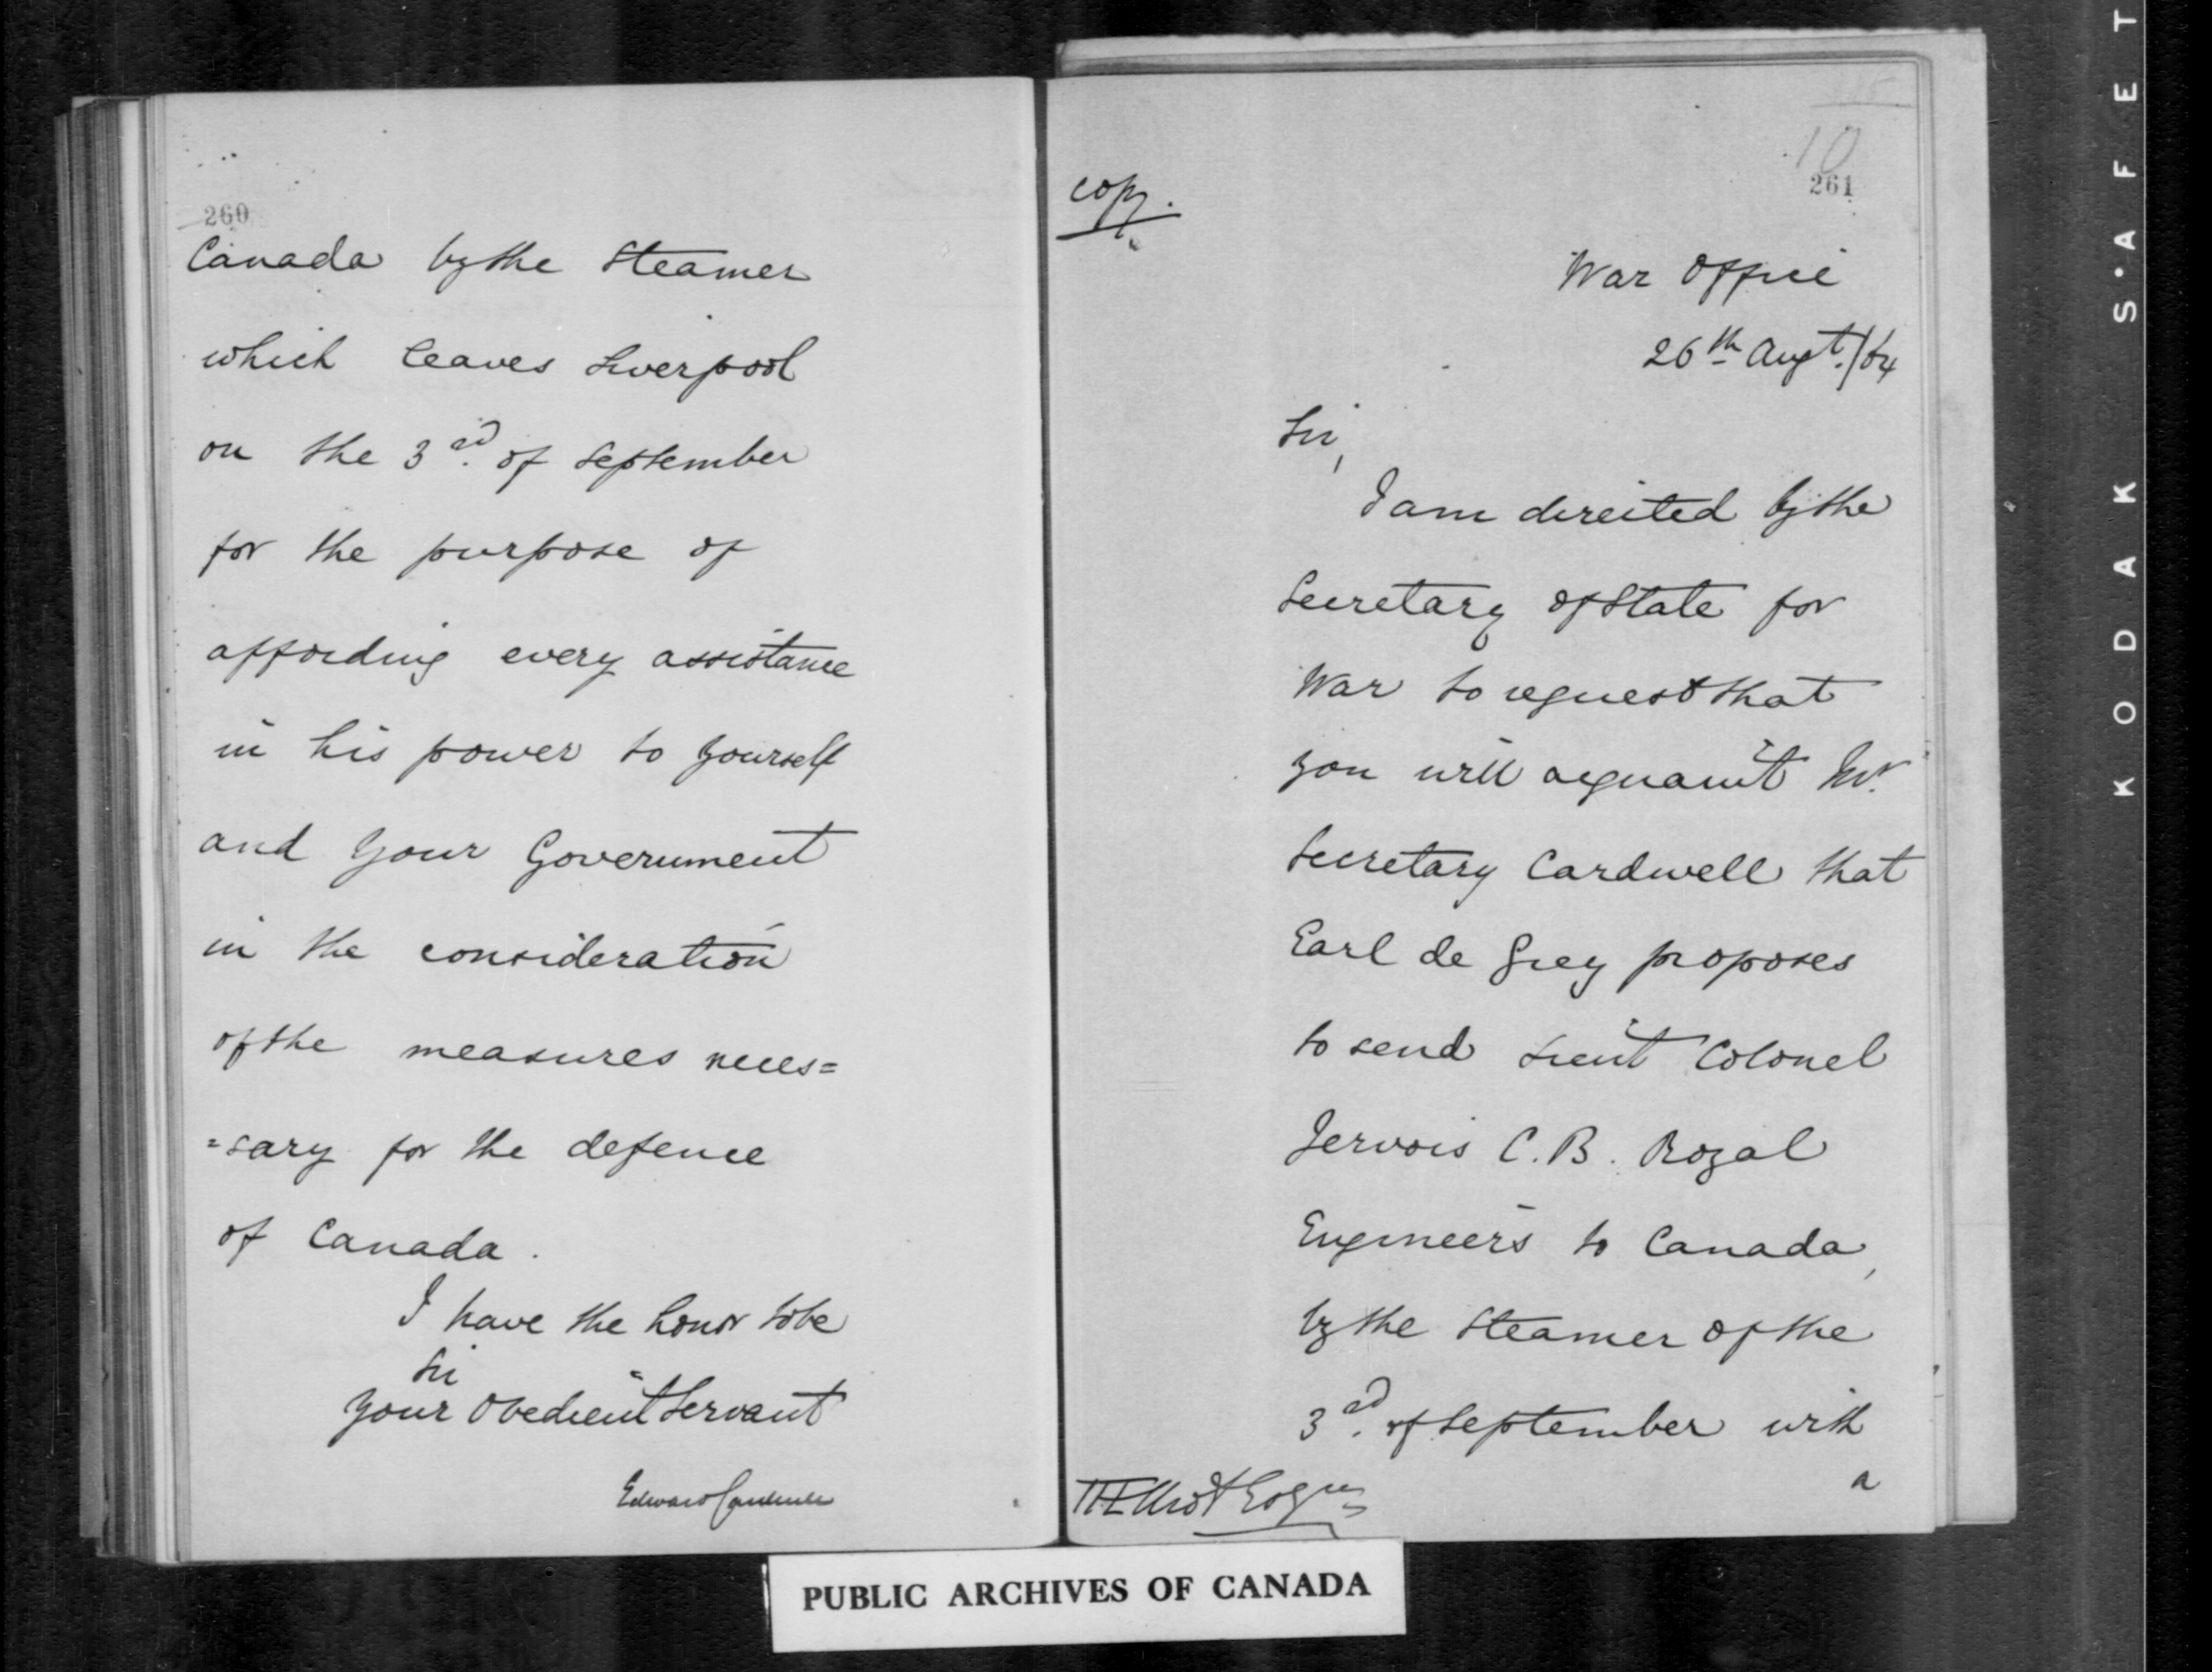 260
Canada by the Steamer
which leaves Liverpool
on the 3rd. of September
for the purpose of
affording every assistance
in his power to yourself
and your Government
in the consideration
of the measures neces=
=sary for the defence
of Canada.
I have the honor to be
Sir
Your Obedient Servant
Edward Cardwell
10
261
Copy.
War Office
26th Augt./64
Sir,
I am directed by the
Secretary of State for
War to request that
you will acquaint Mr.
Secretary Cardwell that
Earl de Grey proposes
to send Lieut Colonel
Jervois C.B. Royal
Engineers to Canada,
by the Steamer of the
3rd. of September with
a
Elliot Esqre
PUBLIC ARCHIVES OF CANADA
KODAK S·AFET